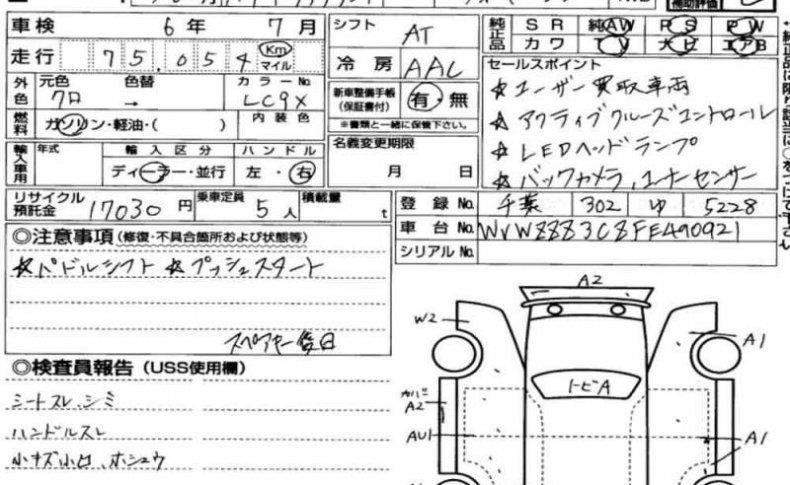 補助評価
車検 6年 7月
シフト AT
純正品 SR 純AW PS PW
カワ TV ナビ エアB
走行 75,054 Km マイル
冷房 AAC
セールスポイント
☆ユーザー買取車両
☆アクティブクルーズコントロール
☆LEDヘッドランプ
☆バックカメラ、コーナーセンサー
外色 元色 色替 カラーNo.
クロ → LC9X
新車整備手帳(保証書付) 有・無
※書類と一緒に保管下さい。
燃料 ガソリン・軽油・( ) 内装色
名義変更期限
月 日
輸入車用 年式 輸入区分 ハンドル
ディーラー・並行 左・右
リサイクル預託金 17030円 乗車定員 5人 積載量 t
登録No. 千葉 302 ゆ 5228
車台No. WVWZZZ3CZFE490921
シリアルNo.
◎注意事項(修復・不具合箇所および状態等)
☆パドルシフト ☆プッシュスタート
スペアキー後日
◎検査員報告(USS使用欄)
シートスレ、シミ
ハンドルスレ
小キズ小凹、ホシュウ
A2
W2
A1
トビA
カバー
A2
AU1
A1